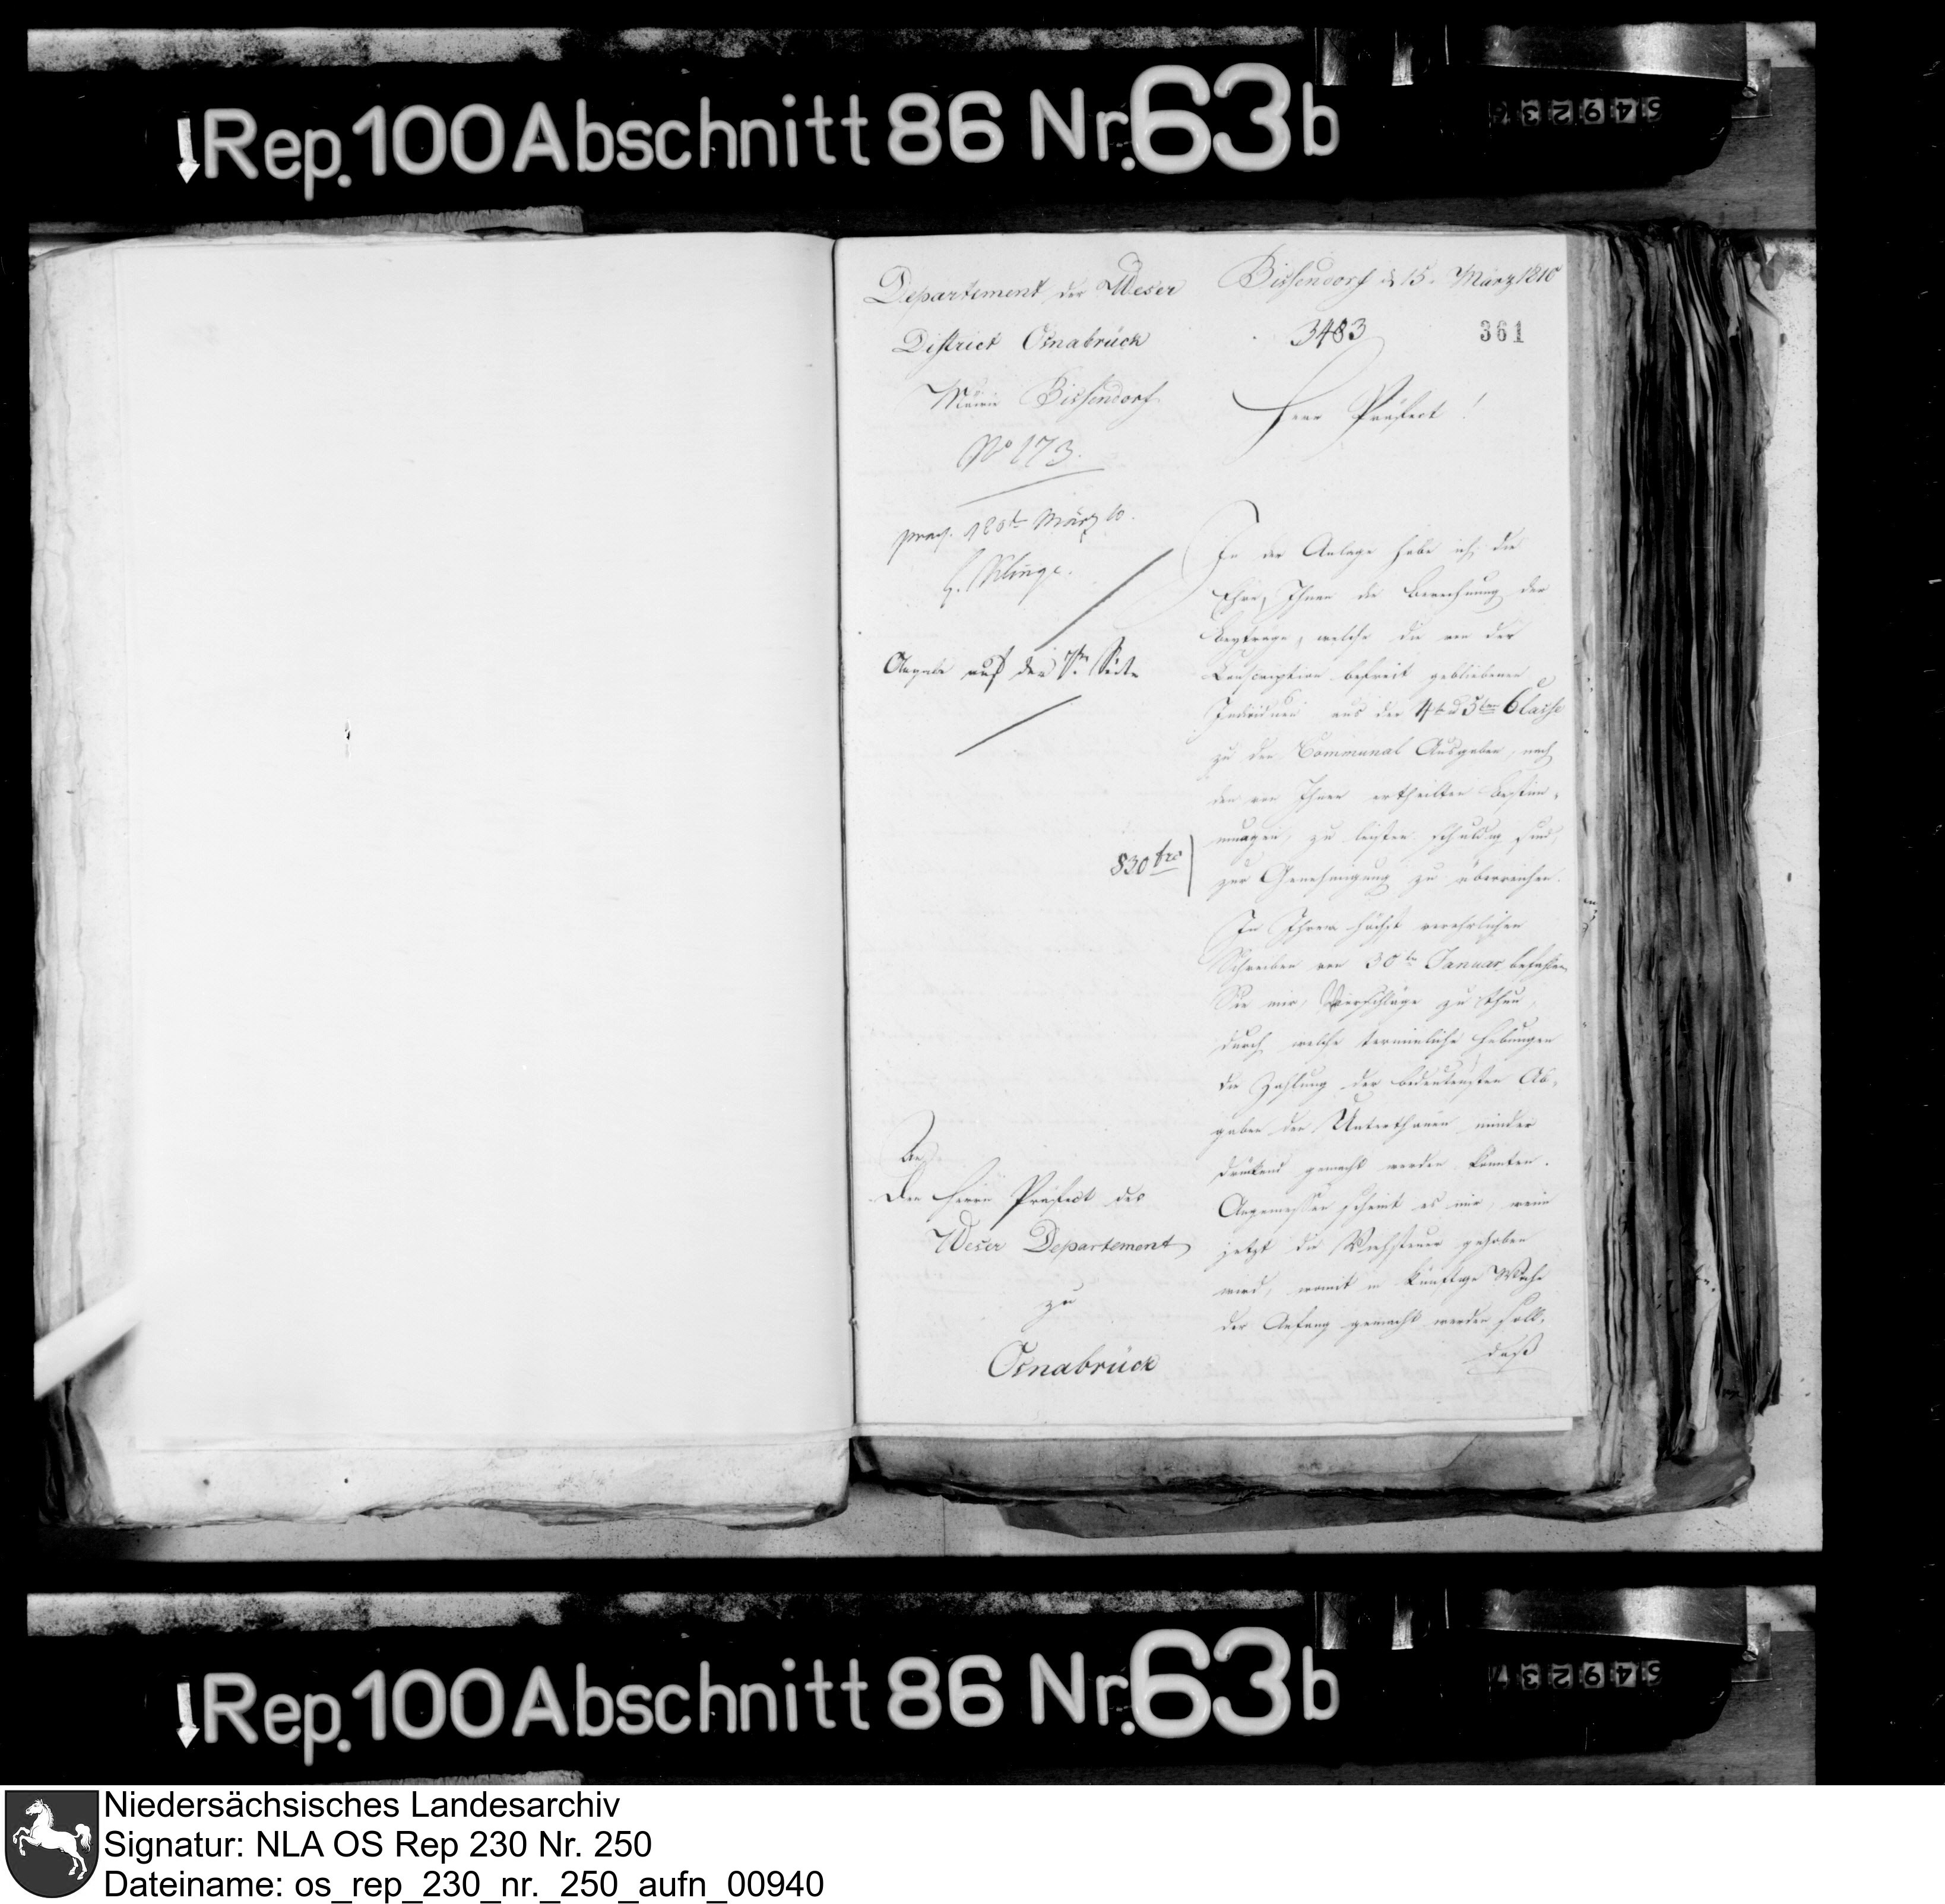 Rep. 100 Abschnitt 86 Nr. 63b
Departement der Weser
District Osnabrück
Mairie Bissendorf
No 173.
präs. 18ten März 10.
Klinge.
auf der Seite
830 frcs
An
Den Herrn Präfect des
Weser Departement
zu
Osnabrück
Bissendorf d 15. März 1810
3483 361
Herr Präfect!
In der Anlage habe ich die
Ehre, Ihnen die Berechnung der
Beyträge, welche die von der
Conscription befreit gebliebenen
Individuen aus der 4t u 5ten Classe
zu den Communal Ausgaben, nach
den von Ihnen ertheilten Bestim-
mungen, zu leisten schuldig sind,
zur Genehmigung zu überreichen.
In Ihrem höchst verehrlichen
Schreiben von 30ten Januar befehlen
Sie mir, Vorschläge zu thun,
durch welche terminliche Hebungen
die Zahlung der bedeutensten Ab-
gaben den Unterthanen minder
drückend gemacht werden könnten.
Angemessen scheint es mir, wenn
jetzt die Viehsteuer gehoben
wird, womit in künftige Woche
der Anfang gemacht werden soll,
daß
Rep. 100 Abschnitt 86 Nr. 63b
Niedersächsisches Landesarchiv
Signatur: NLA OS Rep 230 Nr. 250
Dateiname: os_rep_230_nr._250_aufn_00940